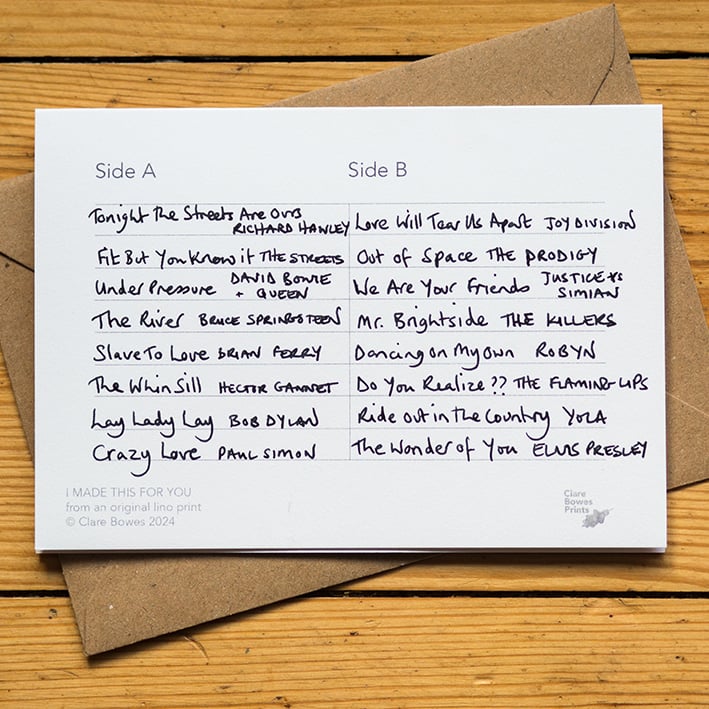 Side A
Tonight The Streets Are Ours
RICHARD HAWLEY
Fit But You Know it THE STREETS
Under Pressure DAVID BOWIE
+ QUEEN
The River BRUCE SPRINGSTEEN
Slave To Love BRIAN FERRY
The Whin Sill HECTOR GANNET
Lay Lady Lay BOB DYLAN
Crazy Love PAUL SIMON
Side B
Love Will Tear Us Apart JOY DIVISION
Out of Space THE PRODIGY
We Are Your Friends JUSTICE vs
SIMIAN
Mr. Brightside THE KILLERS
Dancing on My Own ROBYN
Do You Realize?? THE FLAMING LIPS
Ride out in the Country YOLA
The Wonder of You ELVIS PRESLEY
I MADE THIS FOR YOU
from an original lino print
© Clare Bowes 2024
Clare
Bowes
Prints